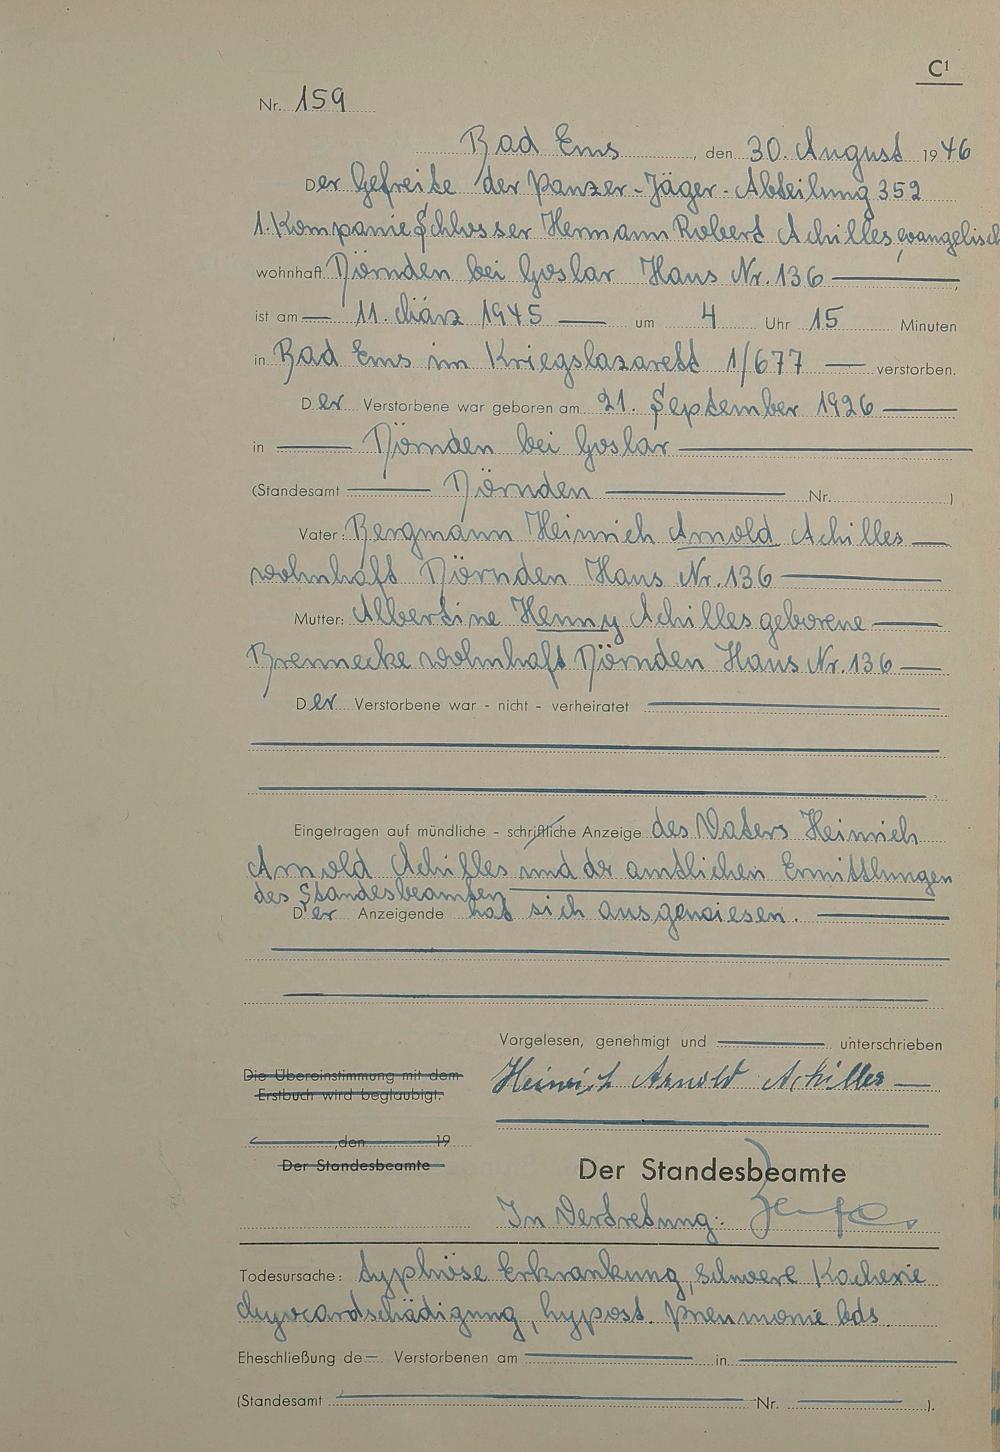 C1
Nr. 159
Bad Ems, den 30. August 1946
Der Gefreite der Panzer-Jäger-Abteilung 352
1. Kompanie Schlosser Hermann Robert Achilles, evangelisch
wohnhaft Dörnden bei Goslar Haus Nr. 136
ist am 11. März 1945 um 4 Uhr 15 Minuten
in Bad Ems im Kriegslazarett 1/677 verstorben.
Der Verstorbene war geboren am 21. September 1926
in Dörnden bei Goslar
(Standesamt Dörnden Nr. )
Vater: Bergmann Heinrich Arnold Achilles
wohnhaft Dörnden Haus Nr. 136
Mutter: Albertine Henny Achilles geborene
Brennecke wohnhaft Dörnden Haus Nr. 136
Der Verstorbene war - nicht - verheiratet
Eingetragen auf mündliche - schriftliche Anzeige des Vaters Heinrich
Arnold Achilles und der amtlichen Ermittlungen
des Standesbeamten
Der Anzeigende hat sich ausgewiesen.
Vorgelesen, genehmigt und unterschrieben
Heinrich Arnold Achilles
Die Übereinstimmung mit dem
Erstbuch wird beglaubigt.
, den 19
Der Standesbeamte
Der Standesbeamte
In Vertretung:
Todesursache: typhöse Erkrankung, schwere Kachexie
Myocardschädigung, hypost. Pneumonie bds.
Eheschließung de Verstorbenen am in
(Standesamt Nr. ).